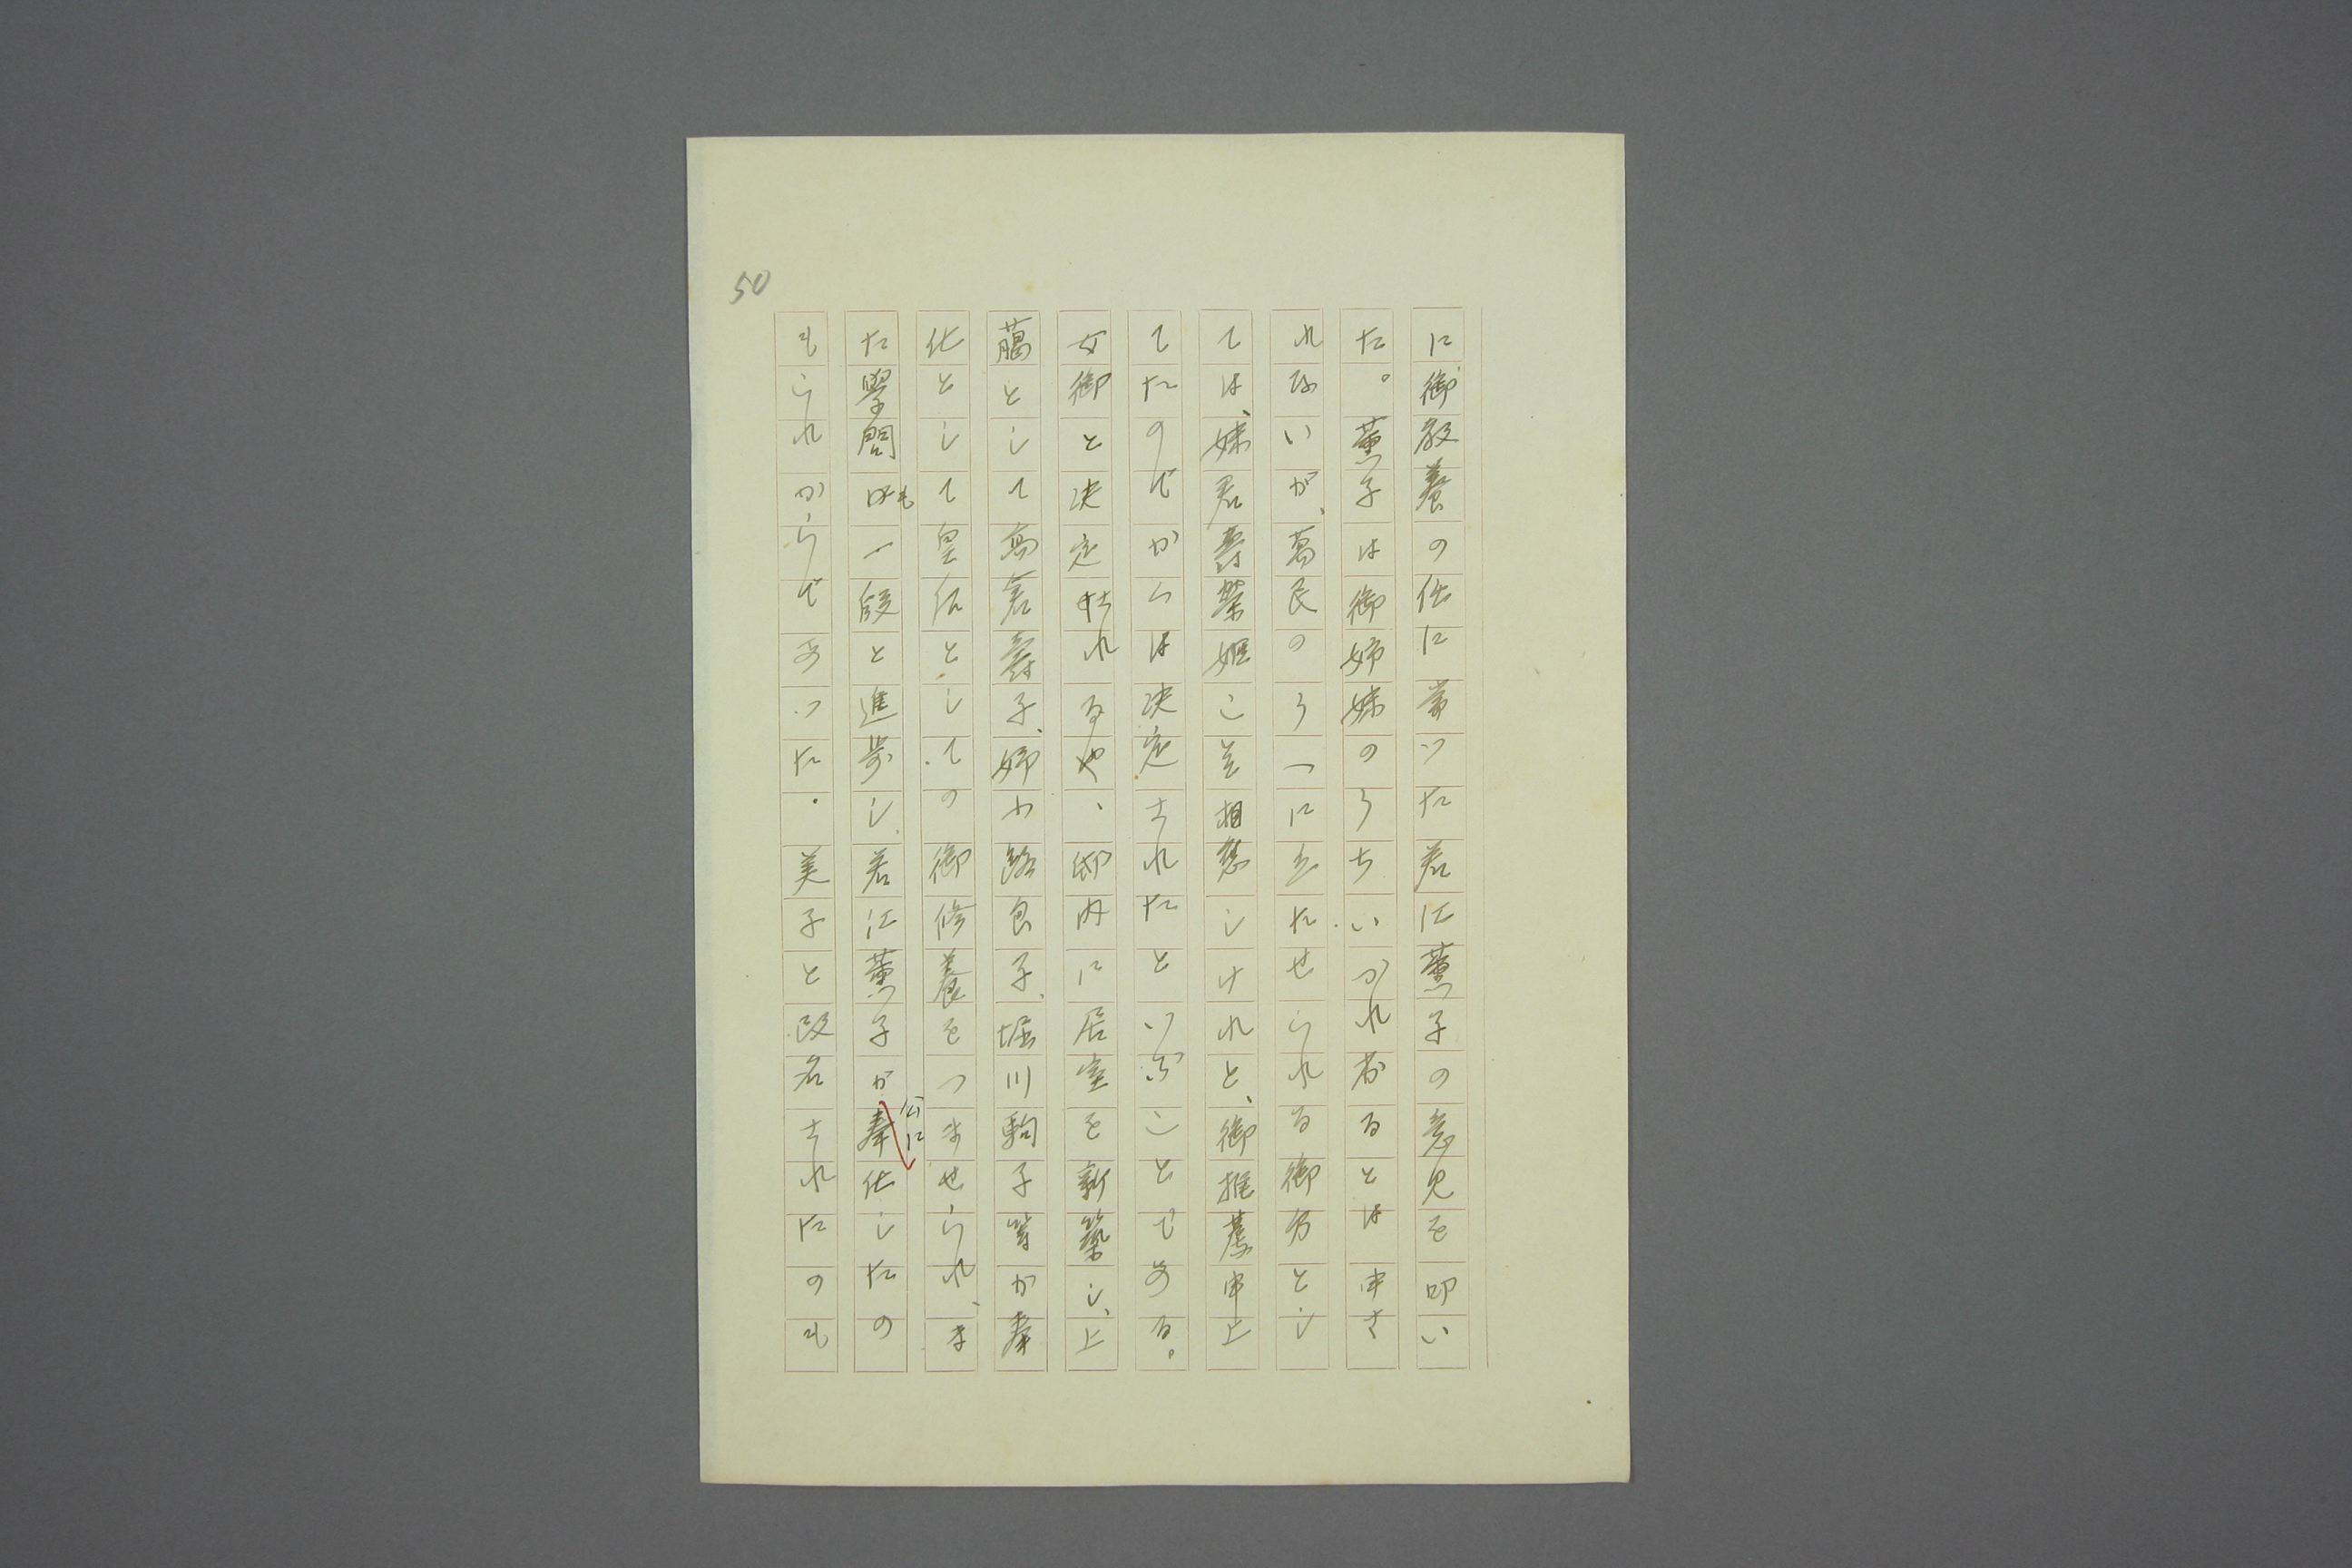 50
に御教養の任に當つた若江薫子の意見を叩い
た。薫子は御姉妹のうちいづれおるとは申さ
れないが、萬民のう一に立たせられる御方とし
ては、妹君壽榮姫こそ相應しけれと、御推薦申上
てたのでからは決定されたといふことである。
女御と決定せれるや、邸内に居室を新築し、上
﨟として高倉壽子、姉小路良子、堀川駒子等が奉
仕として皇后としての御修養をつませられ、ま
た學問も一段と進歩し、若江薫子が公に奉仕したの
もられからであつた。美子と改名されたのも